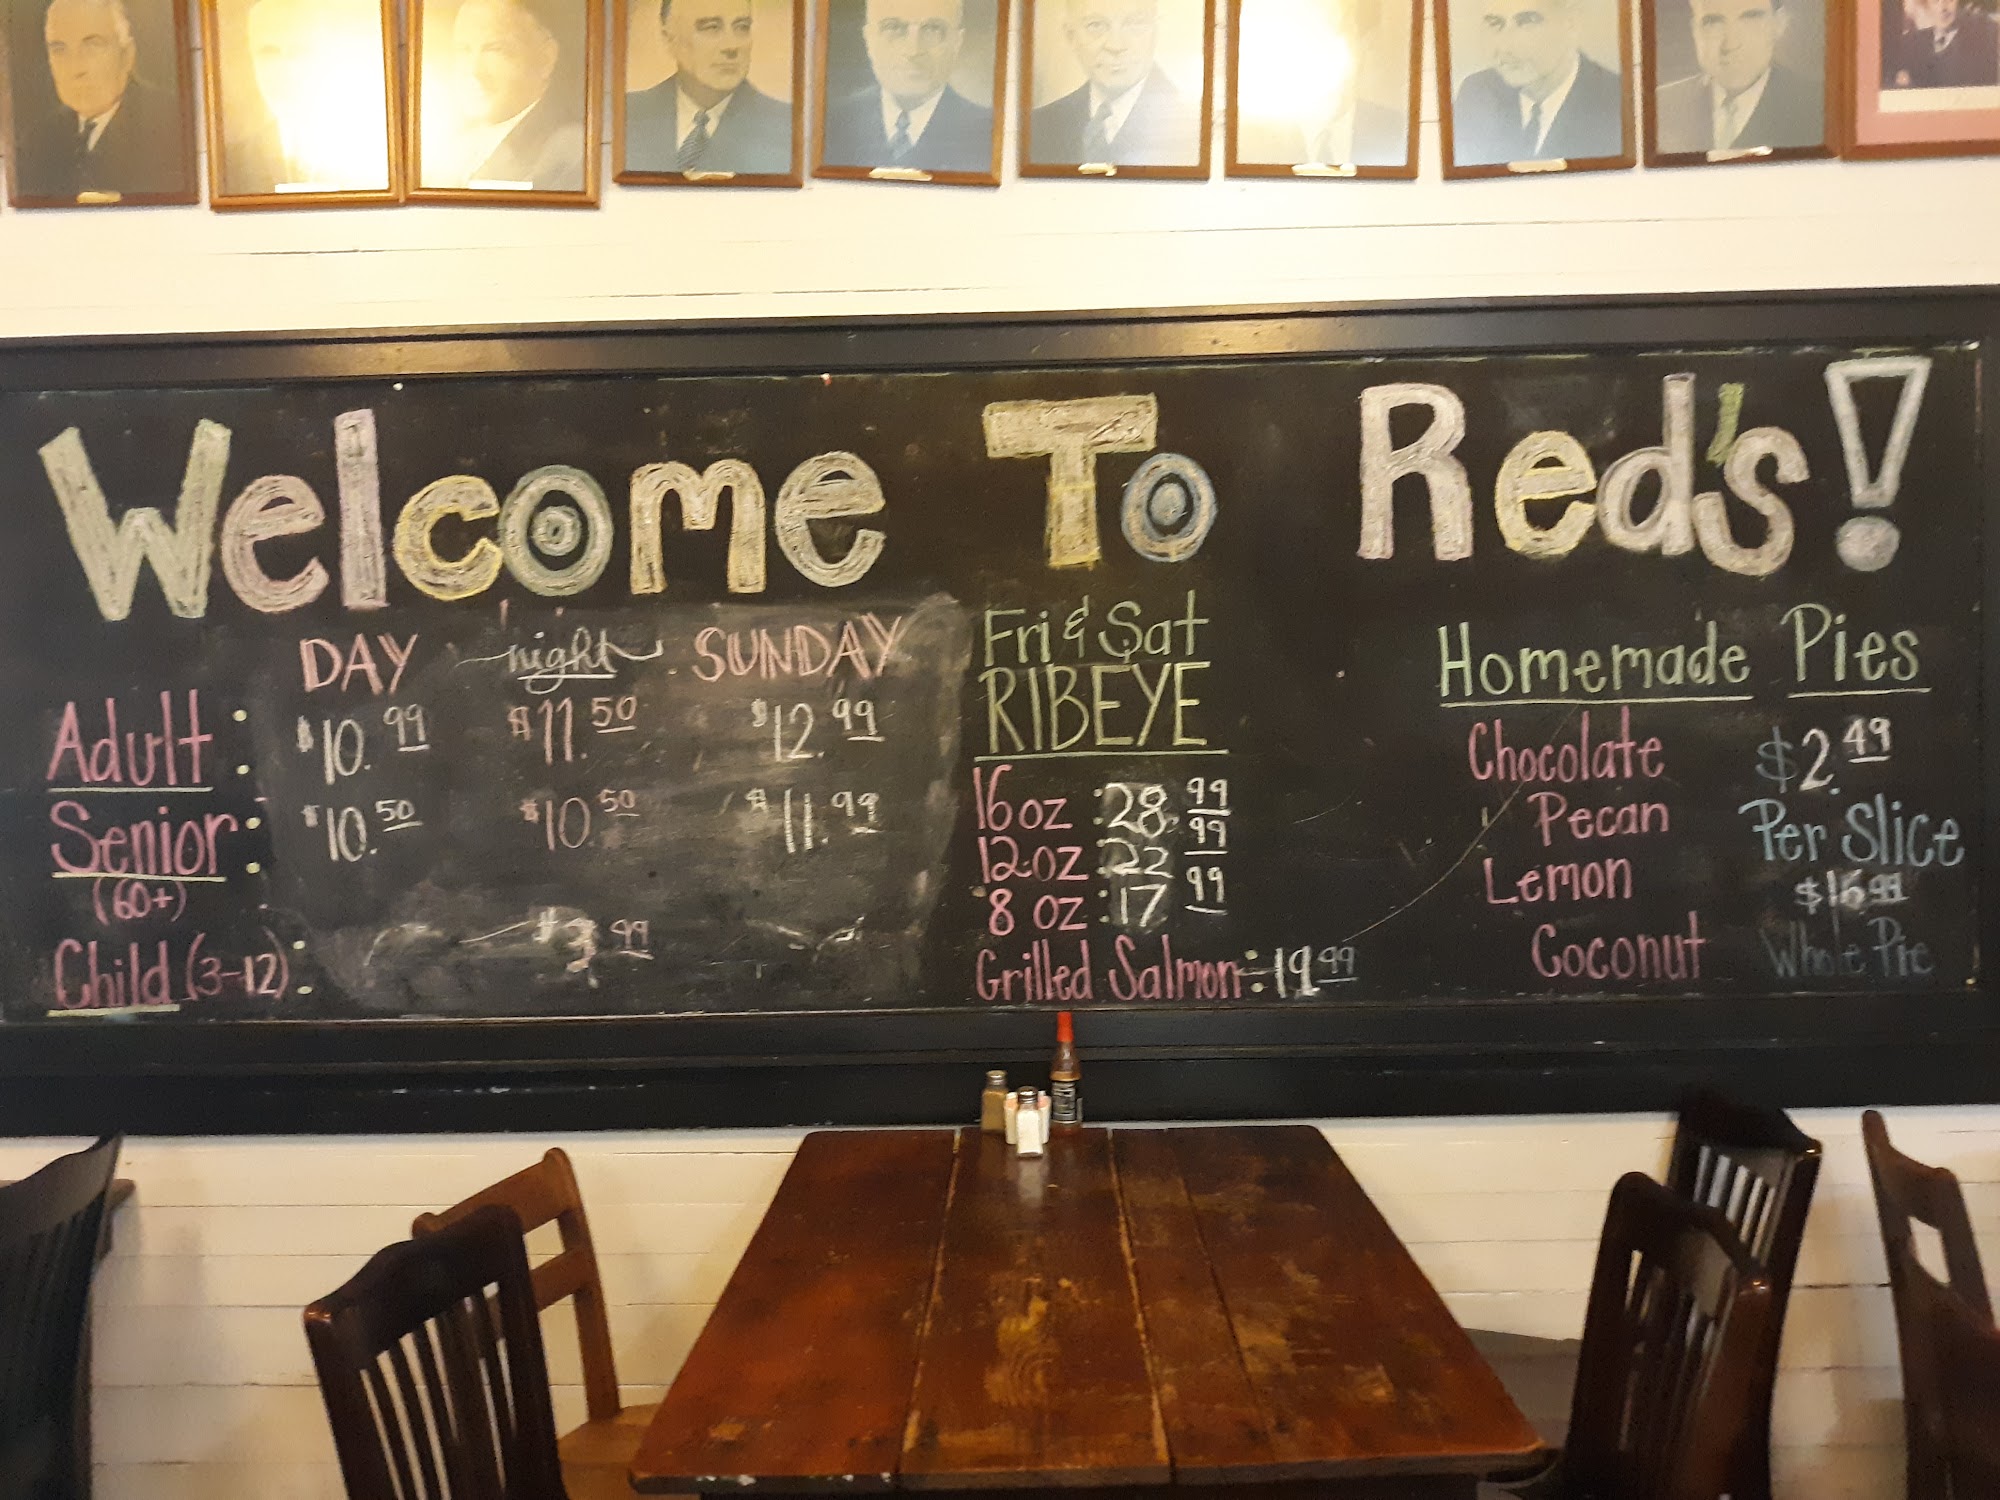 Welcome To Red's!
DAY night SUNDAY
Adult: $10.99 $11.50 $12.99
Senior: $10.50 $10.50 $11.99
(60+)
Child (3-12): $3.99
Fri & Sat
RIBEYE
16 oz : 28.99
12 oz : 22.99
8 oz : 17.99
Grilled Salmon: 19.99
Homemade Pies
Chocolate
Pecan
Lemon
Coconut
$2.49
Per Slice
Whole Pie